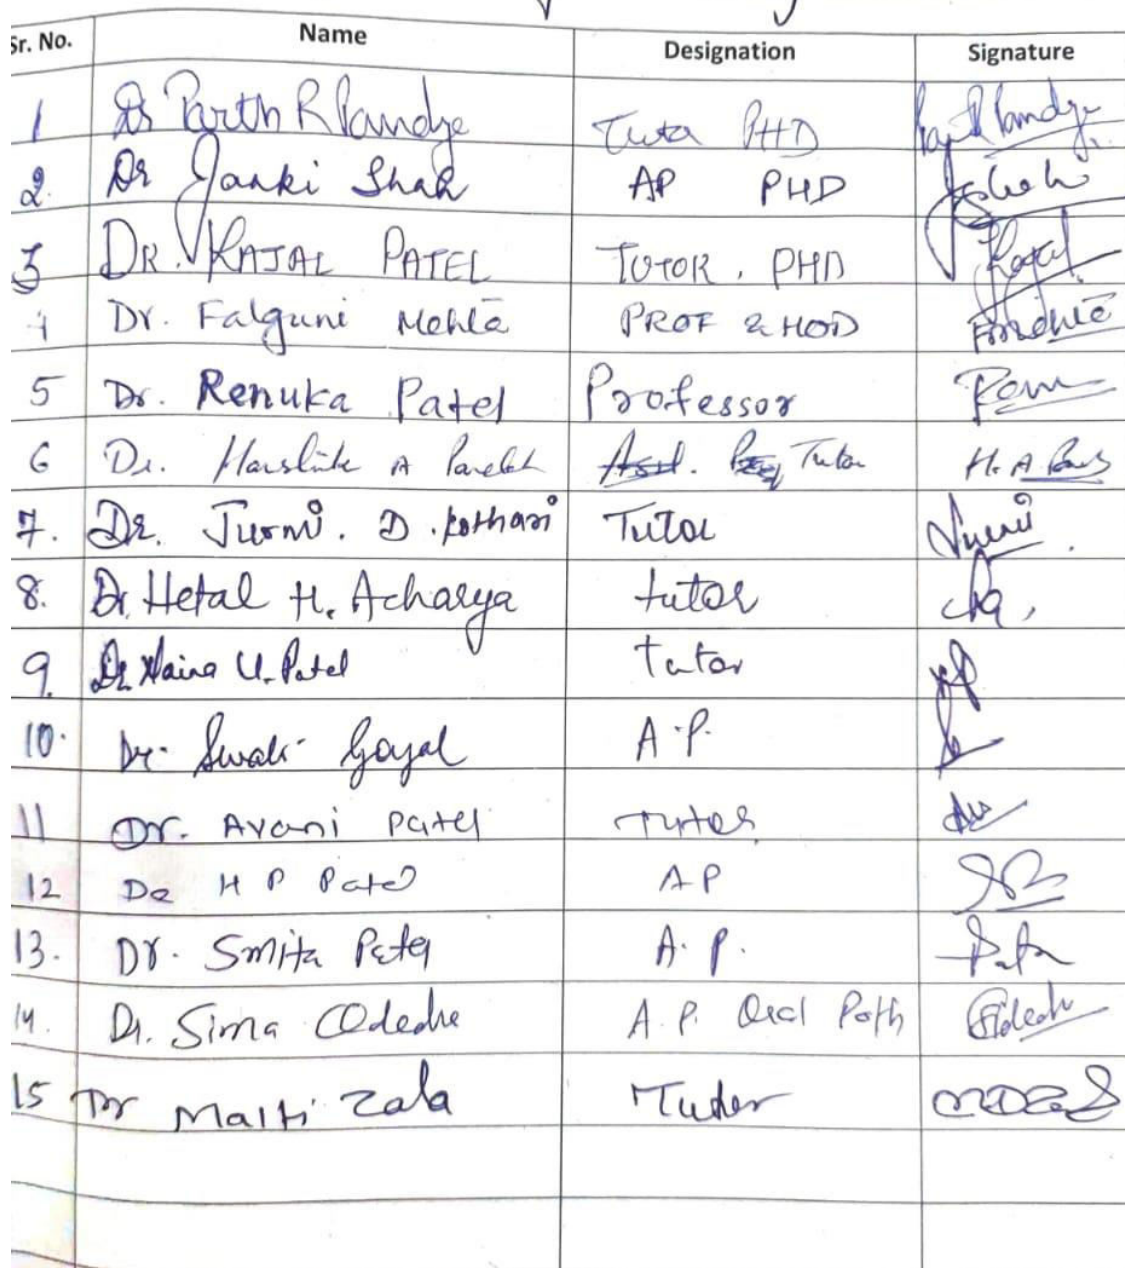 Sr. No. Name Designation Signature
1 Dr Parth R Pandya Tutor PHD
2. Dr Janki Shah AP PHD
3 DR. KAJAL PATEL TUTOR, PHD Kajal
4 Dr. Falguni Mehta PROF & HOD FMehta
5 Dr. Renuka Patel Professor
6 Dr. A Parekh Asst. Tutor H. A.
7. Dr. Jurmi. D. Kothari Tutor
8. Dr Hetal H. Acharya tutor
9. Dr Naina U. Patel Tutor
10. Dr. Swati Goyal A.P.
11 Dr. Avani Patel Tutor
12 Dr H P Patel AP
13. Dr. Smita Patel A.P.
14. Dr. Sima Odedra A.P. Oral Path
15 Dr Malti Zala Tutor